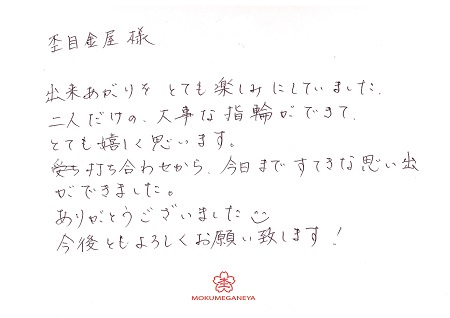 杢目金屋 様
出来あがりを とても楽しみにしていました.
二人だけの、大事な指輪ができて、
とても嬉しく思います。
打ち合わせから、今日まで すてきな思い出
ができました。
ありがとうございました
今後ともよろしくお願い致します！
MOKUMEGANEYA